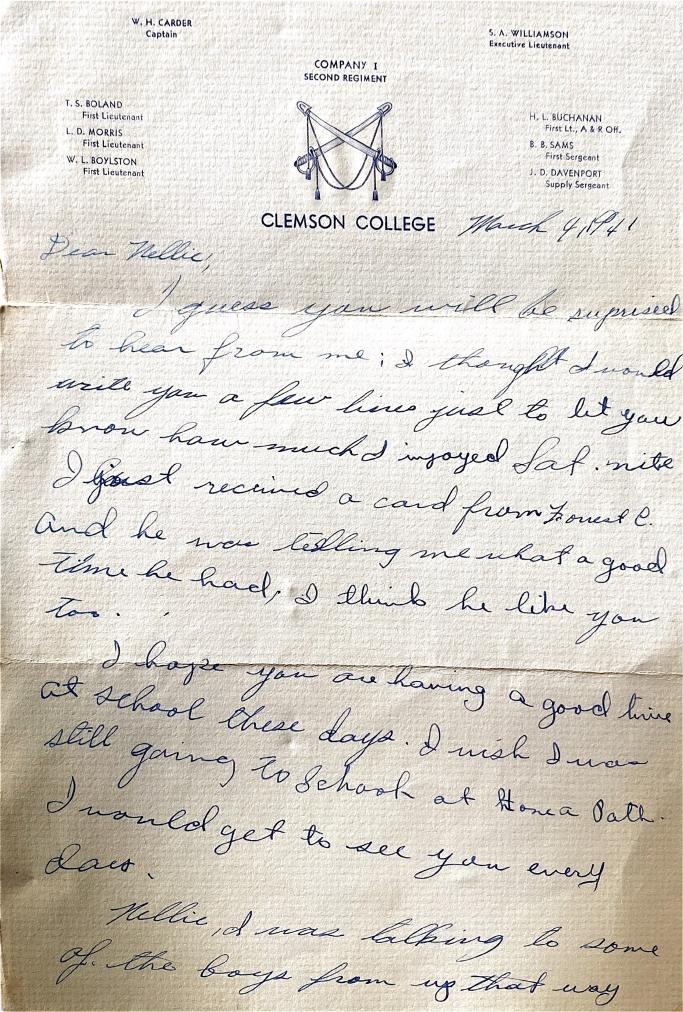 W. H. CARDER
Captain
S. A. WILLIAMSON
Executive Lieutenant
COMPANY I
SECOND REGIMENT
T. S. BOLAND
First Lieutenant
L. D. MORRIS
First Lieutenant
W. L. BOYLSTON
First Lieutenant
H. L. BUCHANAN
First Lt., A & R Off.
B. B. SAMS
First Sergeant
J. D. DAVENPORT
Supply Sergeant
CLEMSON COLLEGE
March 4, 1941
Dear Nellie,
I guess you will be suprised
to hear from me; I thought I would
write you a few lines just to let you
know how much I injoyed Sat. nite
I just received a card from Forrest C.
and he was telling me what a good
time he had, I think he like you
too.
I hope you are having a good time
at school these days. I wish I was
still going to School at Honea Path.
I would get to see you every
day.
Nellie, I was talking to some
of the boys from up that way